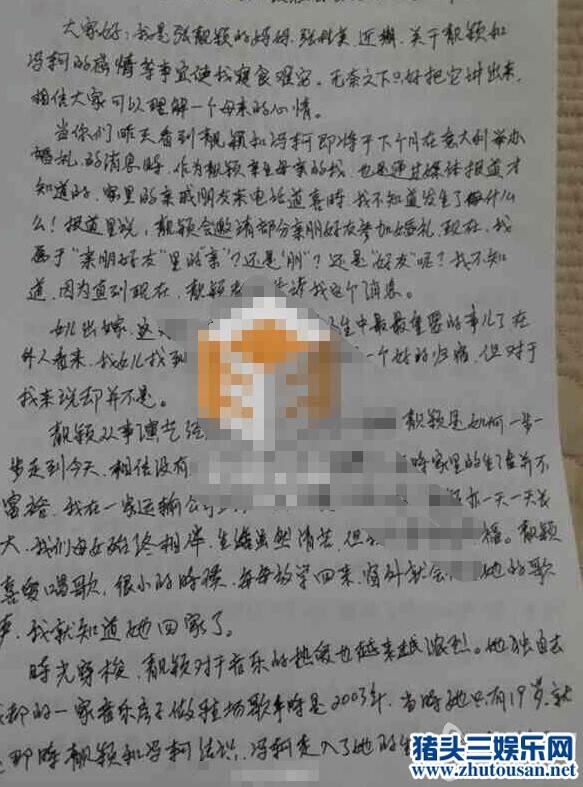 大家好：我是张靓颖的妈妈，张桂英 近期，关于靓颖和
冯柯的感情等事宜使我寝食难安。无奈之下只好把它讲出来，
相信大家可以理解一个母亲的心情。
当你们昨天看到靓颖和冯柯即将于下个月在意大利举办
婚礼的消息时，作为靓颖亲生母亲的我，也是通过媒体报道才
知道的，家里的亲戚朋友来电话道喜时，我不知道发生了什么
么！报道里说，靓颖会邀请部分亲朋好友参加婚礼，现在，我
属于“亲朋好友”里的“亲”？还是“朋”？还是“好友”呢？我不知
道，因为直到现在，靓颖 我这个消息。
女儿出嫁， 生中最最重要的事儿了在
外人看来，我女儿找到 一个好的归宿，但对于
我来说却并不是。
靓颖从事演艺 靓颖是如何一步一
步走到今天，相信没有 时家里的生活并不
富裕，我在一家运输公司 一天一天长
大，我们母女始终相伴，生活虽然清苦，但 福。靓颖
喜爱唱歌，很小的时候，每每放学回来，窗外就会 她的歌
声，我就知道她回家了。
时光穿梭，靓颖对于音乐的热爱也越来越浓烈。她独自去
都的一家音乐房子做驻场歌手时是2003年，当时她只有19岁，就
那时靓颖和冯柯结识，冯柯走入了她的生
猪头三娱乐网
www.zhutousan.net